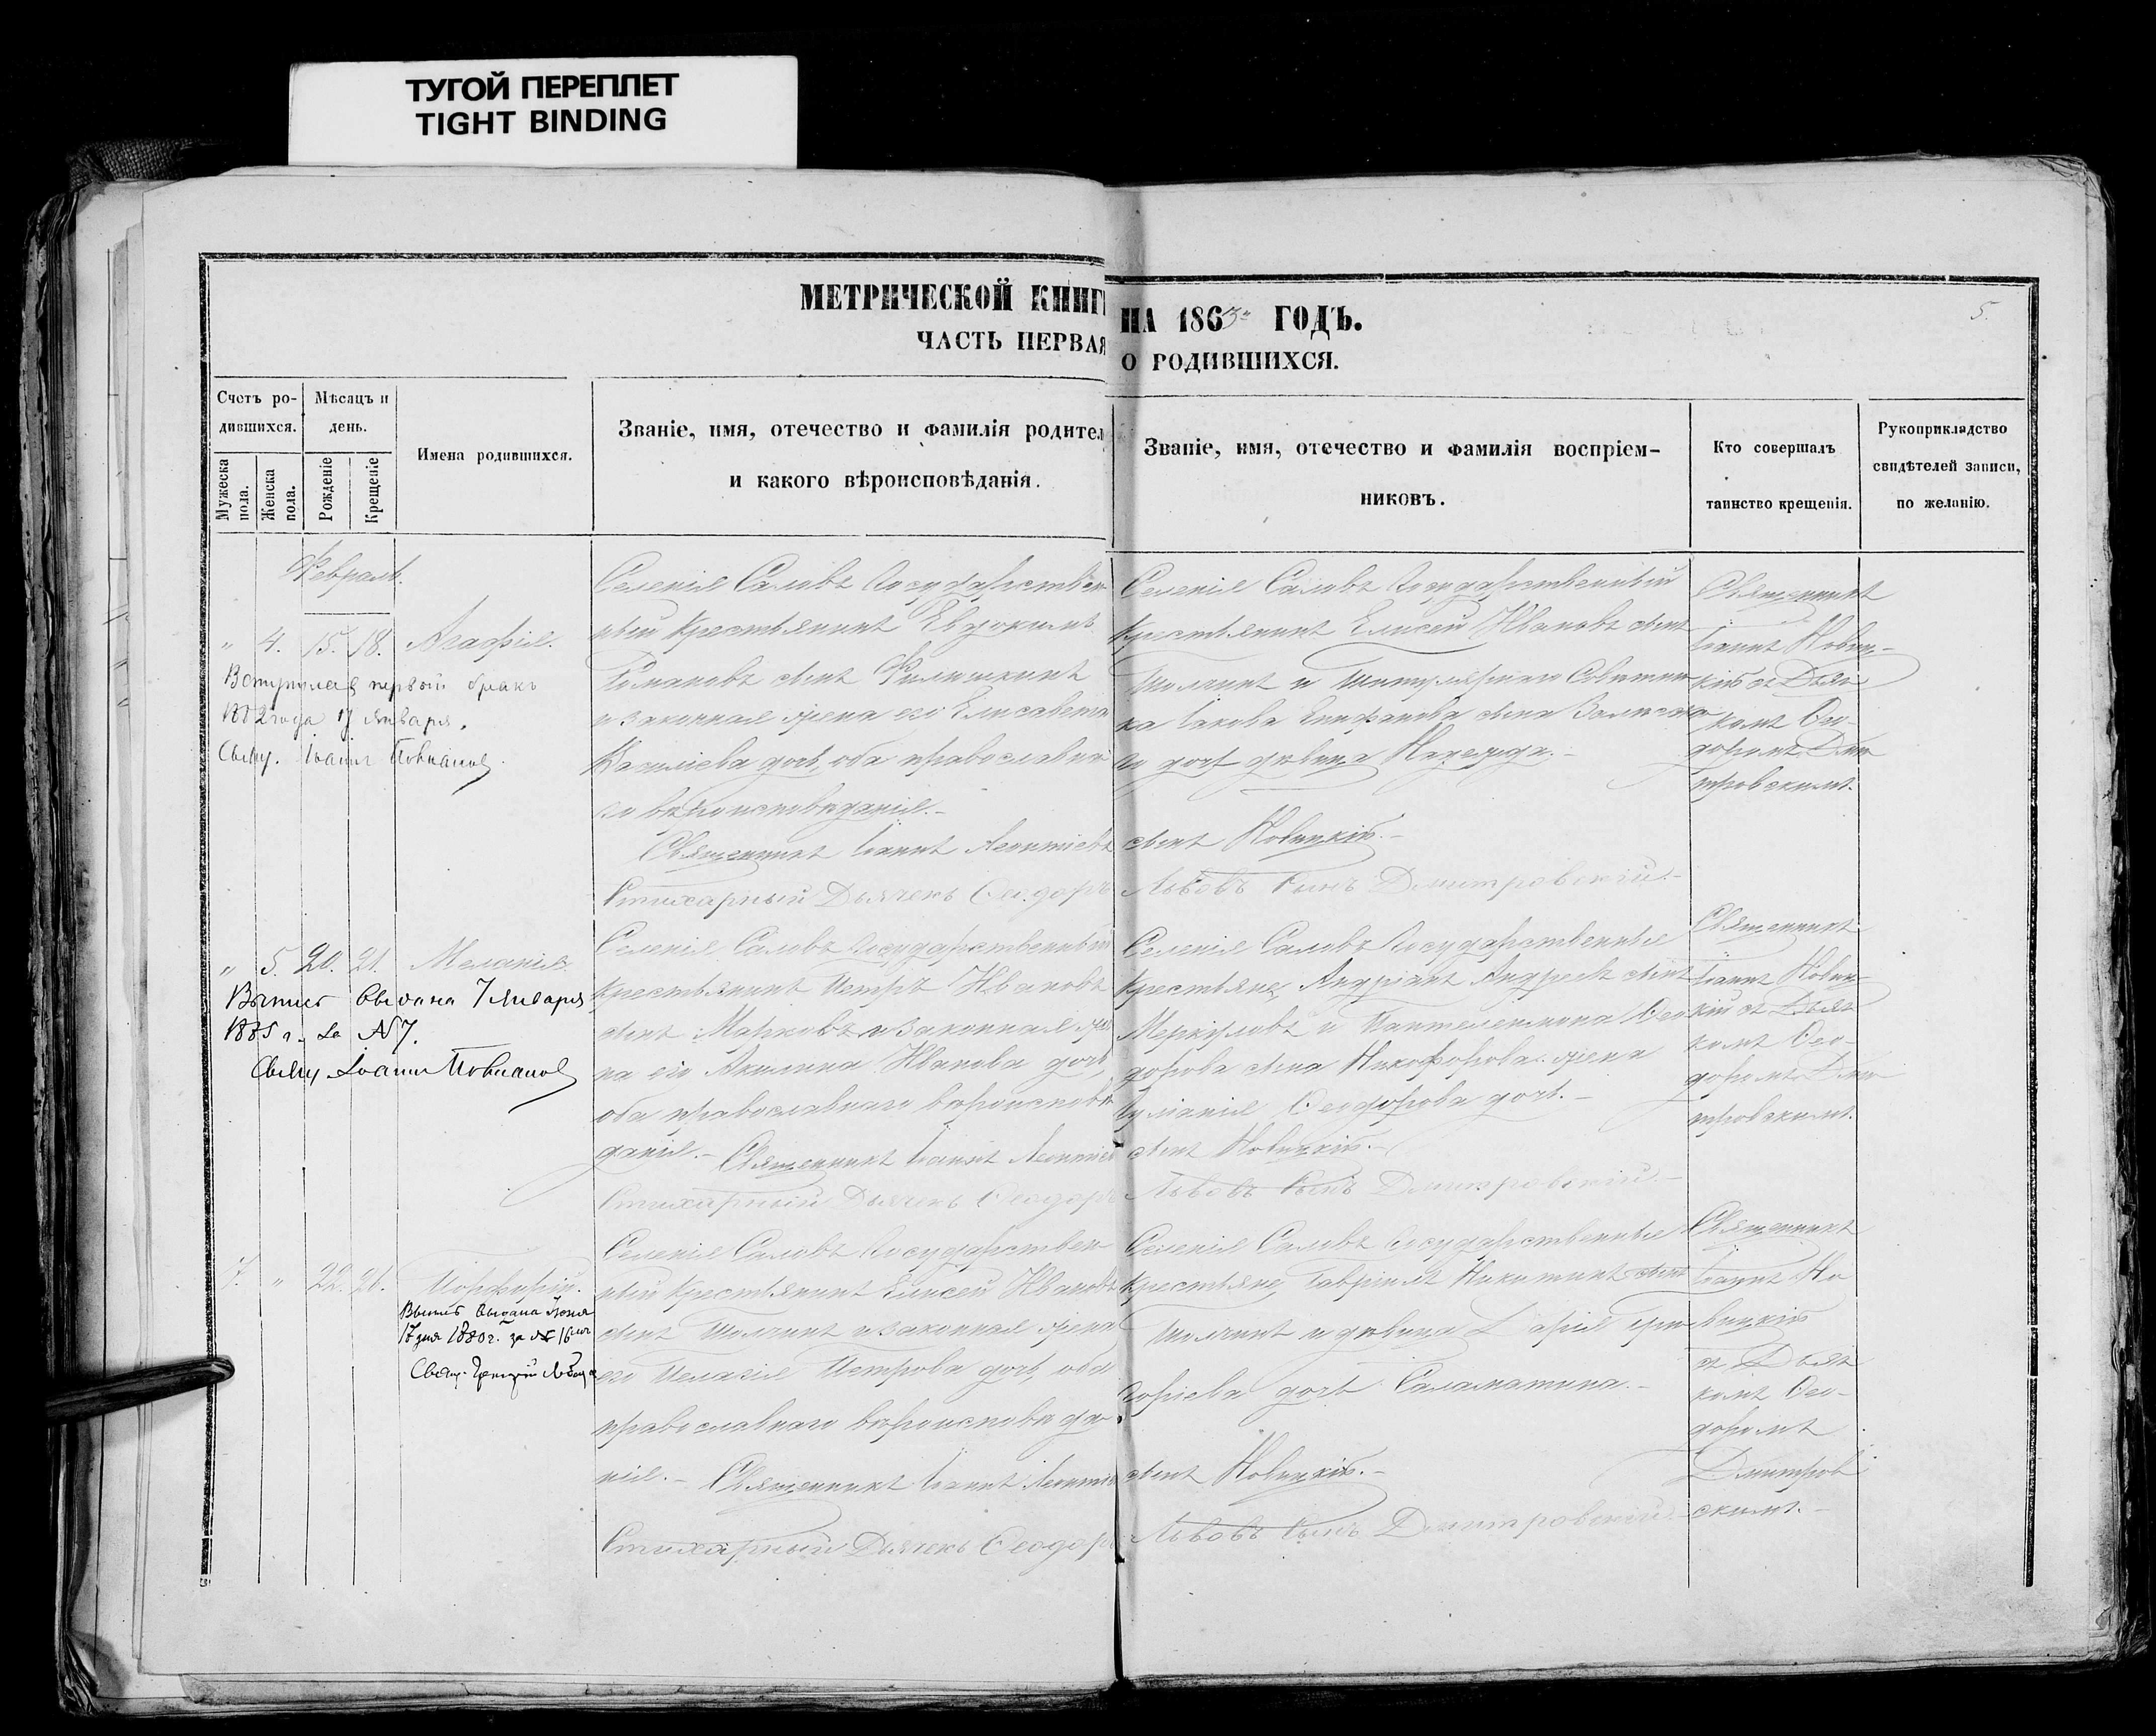 ТУГОЙ ПЕРЕПЛЕТ
TIGHT BINDING
МЕТРИЧЕСКОЙ КНИГ
НА 1863 ГОДЪ.
5.
ЧАСТЬ ПЕРВАЯ
О РОДИВШИХСЯ.
Счетъ ро-
дившихся.
Мужеска пола.
Женска пола.
Мѣсяцъ и
день.
Рожденіе
Крещеніе
Имена родившихся.
Званіе, имя, отечество и фамилія родител
и какого вѣроисповѣданія.
Званіе, имя, отечество и фамилія воспріем-
никовъ.
Кто совершалъ
таинство крещенія.
Рукоприкладство
свидѣтелей записи,
по желанію.
Февраль.
" 4. 15. 18. Агафія.
Вступила в первый бракъ
1882 года 17 Января.
Свящ. Іоаннъ
Селенія Саловъ Государствен
ный Крестьянинъ Евдокимъ
Романовъ сынъ Филишкинъ
и законная жена его Елисавета
Василіева дочь, оба православна
го вѣроисповѣданія.-
Священникъ Іоаннъ Леонтіевъ
Стихарный Дьячекъ Ѳеодоръ
Селенія Саловъ Государственный
Крестьянинъ Елисей Ивановъ сынъ
и Титулярнаго Совѣтни
ка Іакова сына
го дочь дѣвица Надежда.-
сынъ Новицкій.-
Львовъ Сынъ Дмитровскій.-
Священникъ
Іоаннъ Новиц-
кій съ Дьяч
комъ Ѳео-
доромъ Дми
тровскимъ.
" 5. 20. 21. Меланія.
Выпись выдана 7 Января
1885 г. за № 7.
Свящ. Іоаннъ
Селенія Саловъ Государственный
крестьянинъ Петръ Ивановъ
сынъ Марковъ и законная же
на его Акилина Иванова дочь,
оба православнаго вѣроисповѣ
данія.- Священникъ Іоаннъ Леонтіев
Стихарный Дьячекъ Ѳеодоръ
Селенія Саловъ Государственные
Крестьяне, Андріанъ Андреевъ сынъ
Меркуловъ и Пантелеимона Ѳео
дорова сына Никофорова жена
Іуліанія Ѳеодорова дочь.-
сынъ Новицкій.-
Львовъ Сынъ Дмитровскій.-
Священникъ
Іоаннъ Новиц-
кій съ Дьяч
комъ Ѳео-
доромъ Дми
тровскимъ.
7. " 22. 26. Порфирій.
Выпись выдана Іюня
17 дня 1880 г. за № 16
Свящ.
Селенія Саловъ Государствен
ный Крестьянинъ Елисей Ивановъ
сынъ и законная жена
его Пелагія Петрова дочь, оба
православнаго вѣроисповѣда-
нія.- Священникъ Іоаннъ Леонтіев
Стихарный Дьячекъ Ѳеодоръ
Селенія Саловъ Государственные
Крестьяне, Гавріилъ Никитинъ сынъ
и дѣвица Дарія Гри
горіева дочь Саламатина.-
сынъ Новицкій.-
Львовъ Сынъ Дмитровскій.-
Священникъ
Іоаннъ Но
вицкій
съ Дьяч
комъ Ѳео-
доромъ
Дмитров
скимъ.-